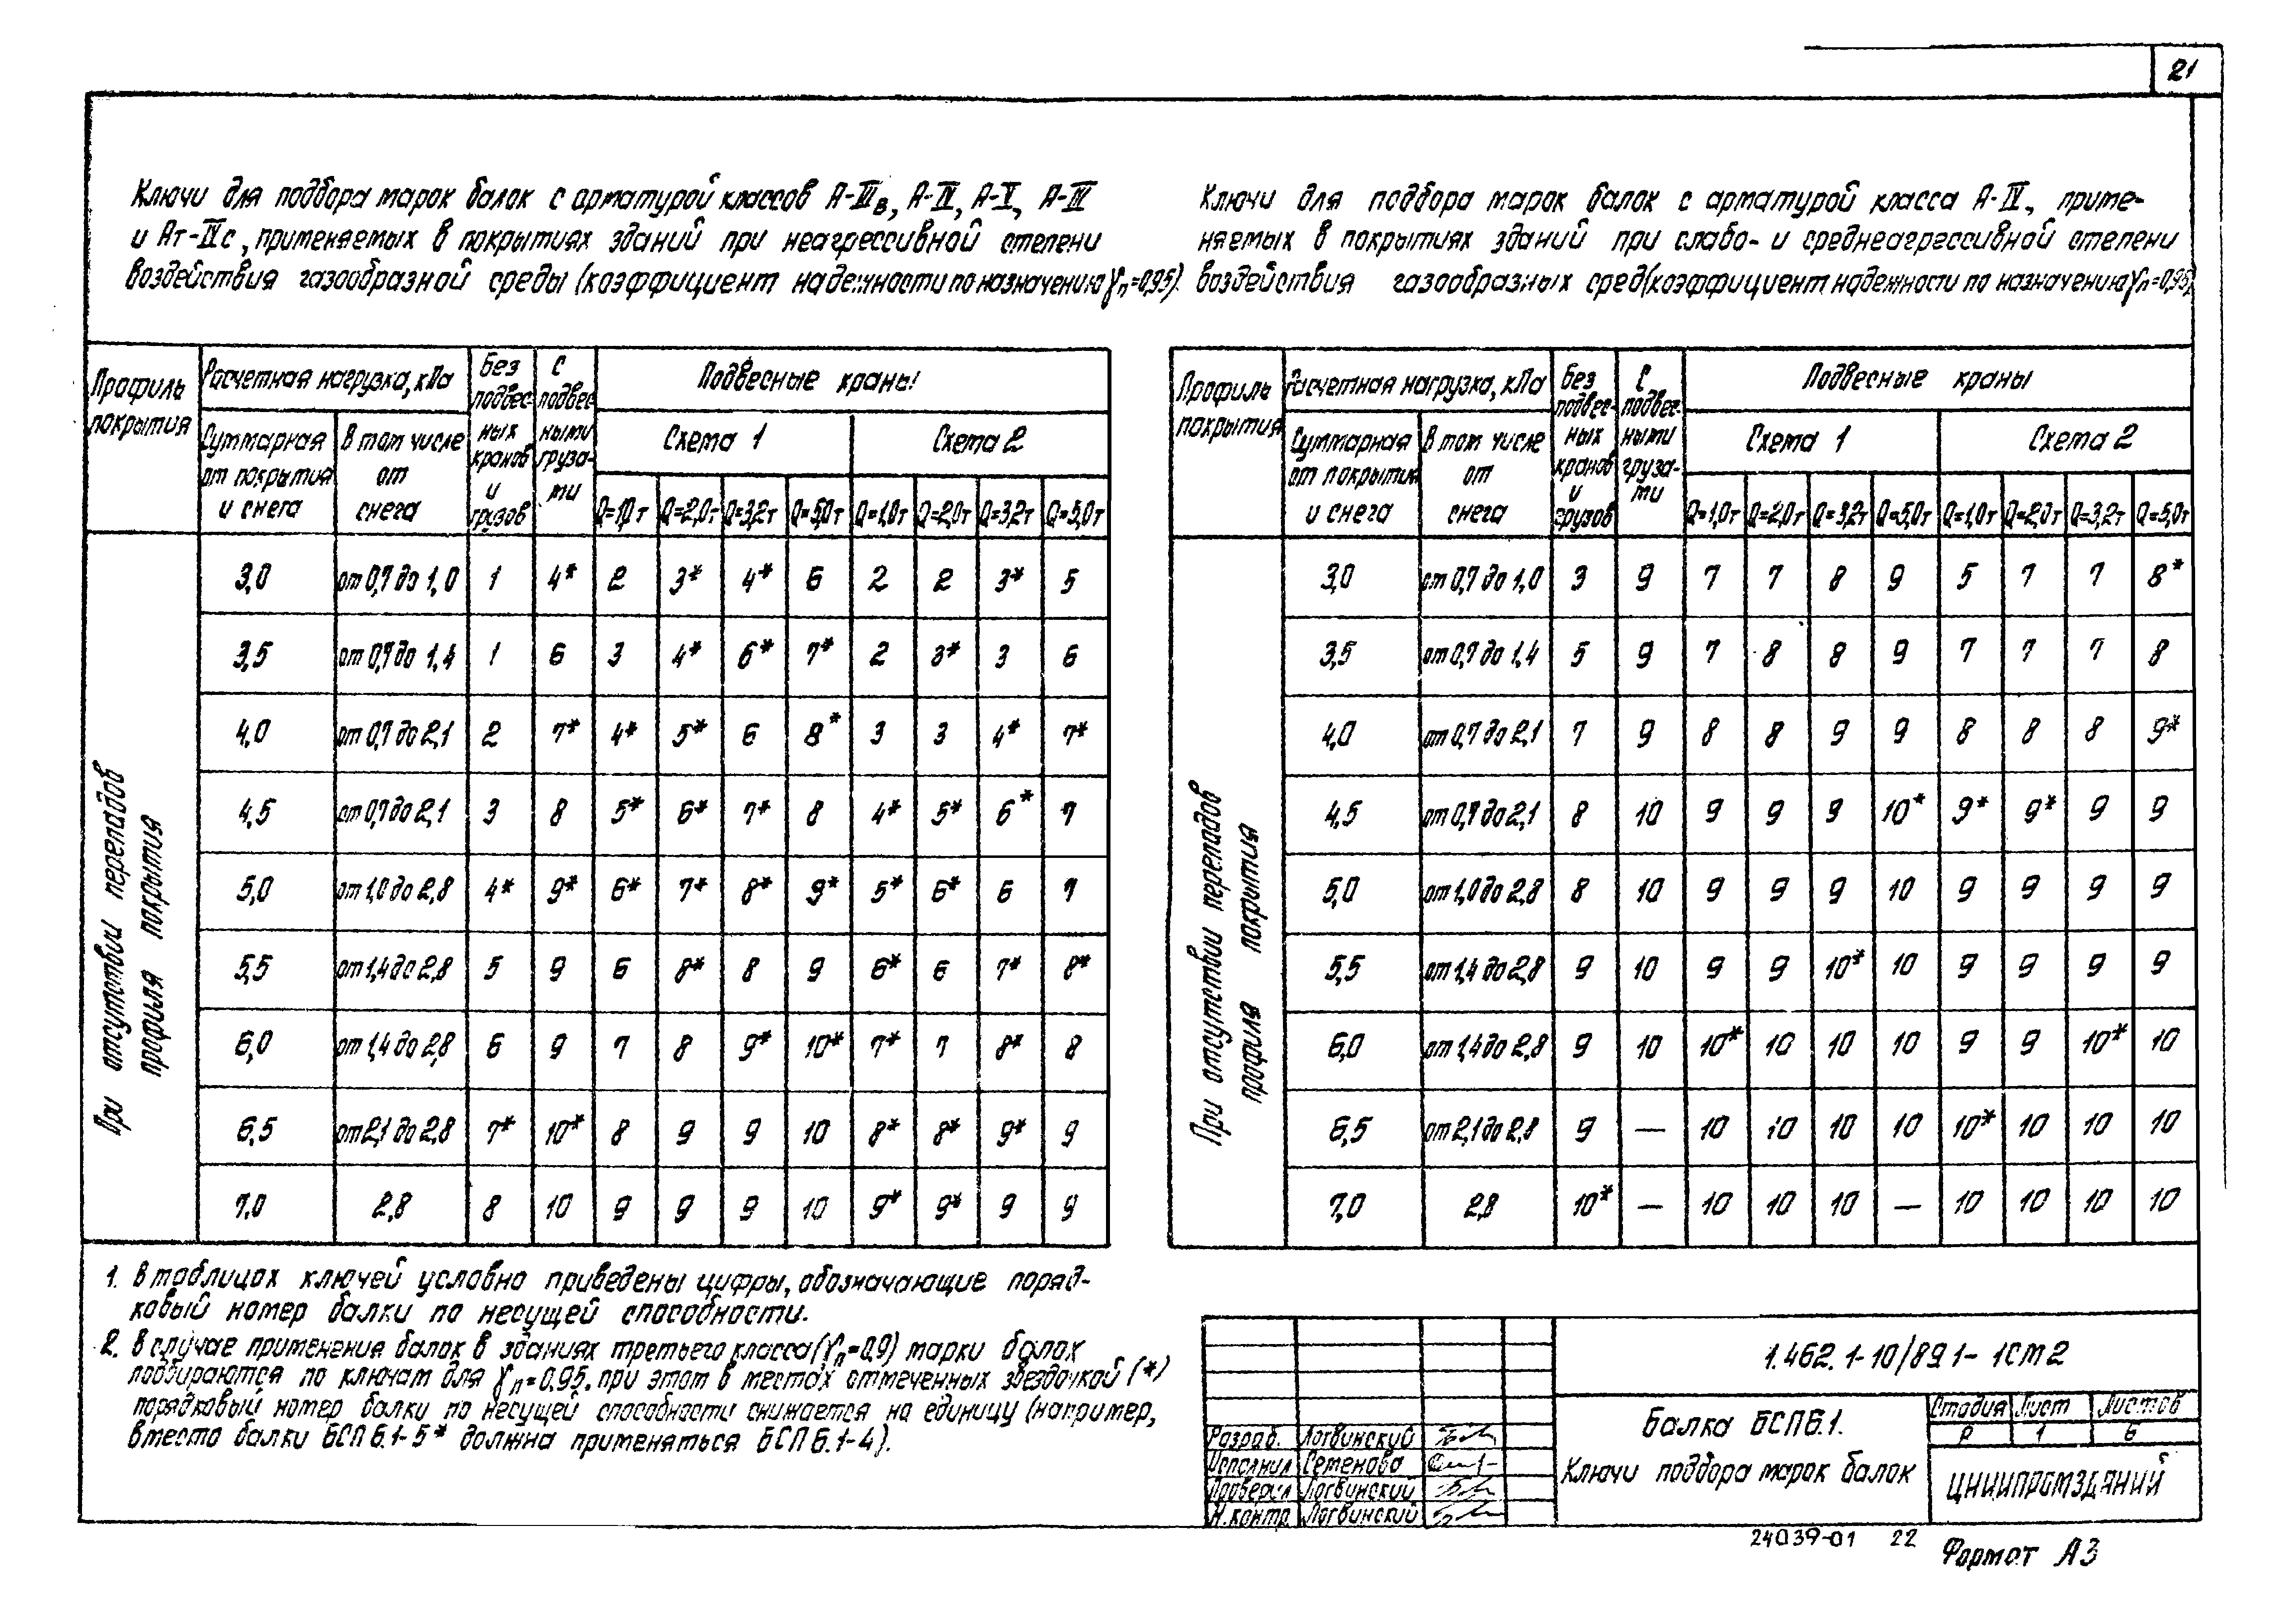 21
Ключи для подбора марок балок с арматурой классов А-IIIв, А-IV, А-V, А-III
и Ат-IVс, применяемых в покрытиях зданий при неагрессивной степени
воздействия газообразной среды (коэффициент надежности по назначению γn=0,95).
Ключи для подбора марок балок с арматурой класса А-IV, приме-
няемых в покрытиях зданий при слабо- и среднеагрессивной степени
воздействия газообразных сред (коэффициент надежности по назначению γn=0,95)
Профиль покрытия
Расчетная нагрузка, кПа
Суммарная от покрытия и снега
В том числе от снега
Без подвес-ных кранов и грузов
С подвес-ными груза-ми
Подвесные краны
Схема 1
Схема 2
Q=1,0т Q=2,0т Q=3,2т Q=5,0т Q=1,0т Q=2,0т Q=3,2т Q=5,0т
При отсутствии перепадов
профиля покрытия
3,0 от 0,7 до 1,0 1 4* 2 3* 4* 6 2 2 3* 5
3,5 от 0,7 до 1,4 1 6 3 4* 6* 7* 2 3* 3 6
4,0 от 0,7 до 2,1 2 7* 4* 5* 6 8* 3 3 4* 7*
4,5 от 0,7 до 2,1 3 8 5* 6* 7* 8 4* 5* 6* 7
5,0 от 1,0 до 2,8 4* 9* 6* 7* 8* 9* 5* 6* 6 7
5,5 от 1,4 до 2,8 5 9 6 8* 8 9 6* 6 7* 8*
6,0 от 1,4 до 2,8 6 9 7 8 9* 10* 7* 7 8* 8
6,5 от 2,1 до 2,8 7* 10* 8 9 9 10 8* 8* 9* 9
7,0 2,8 8 10 9 9 9 10 9* 9* 9 9
Профиль покрытия
Расчетная нагрузка, кПа
Суммарная от покрытия и снега
В том числе от снега
Без подвес-ных кранов и грузов
С подвес-ными груза-ми
Подвесные краны
Схема 1
Схема 2
Q=1,0т Q=2,0т Q=3,2т Q=5,0т Q=1,0т Q=2,0т Q=3,2т Q=5,0т
При отсутствии перепадов
профиля покрытия
3,0 от 0,7 до 1,0 3 9 7 7 8 9 5 7 7 8*
3,5 от 0,7 до 1,4 5 9 7 8 8 9 7 7 7 8
4,0 от 0,7 до 2,1 7 9 8 8 9 9 8 8 8 9*
4,5 от 0,7 до 2,1 8 10 9 9 9 10* 9* 9* 9 9
5,0 от 1,0 до 2,8 8 10 9 9 9 10 9 9 9 9
5,5 от 1,4 до 2,8 9 10 9 9 10* 10 9 9 9 9
6,0 от 1,4 до 2,8 9 10 10* 10 10 10 9 9 10* 10
6,5 от 2,1 до 2,8 9 — 10 10 10 10 10* 10 10 10
7,0 2,8 10* — 10 10 10 — 10 10 10 10
1. В таблицах ключей условно приведены цифры, обозначающие поряд-
ковый номер балки по несущей способности.
2. В случае применения балок в зданиях третьего класса (γn=0,9) марки балок
подбираются по ключам для γn=0,95, при этом в местах отмеченных звездочкой (*)
порядковый номер балки по несущей способности снижается на единицу (например,
вместо балки БСП6.1-5* должна применяться БСП6.1-4).
1.462.1-10/89.1-1СМ2
Балка БСП6.1.
Ключи подбора марок балок
Стадия Лист Листов
Р 1 6
ЦНИИПРОМЗДАНИЙ
Разраб. Логвинский
Исполнил Семенова
Проверил Логвинский
Н.контр. Логвинский
24039-01 22
Формат А3